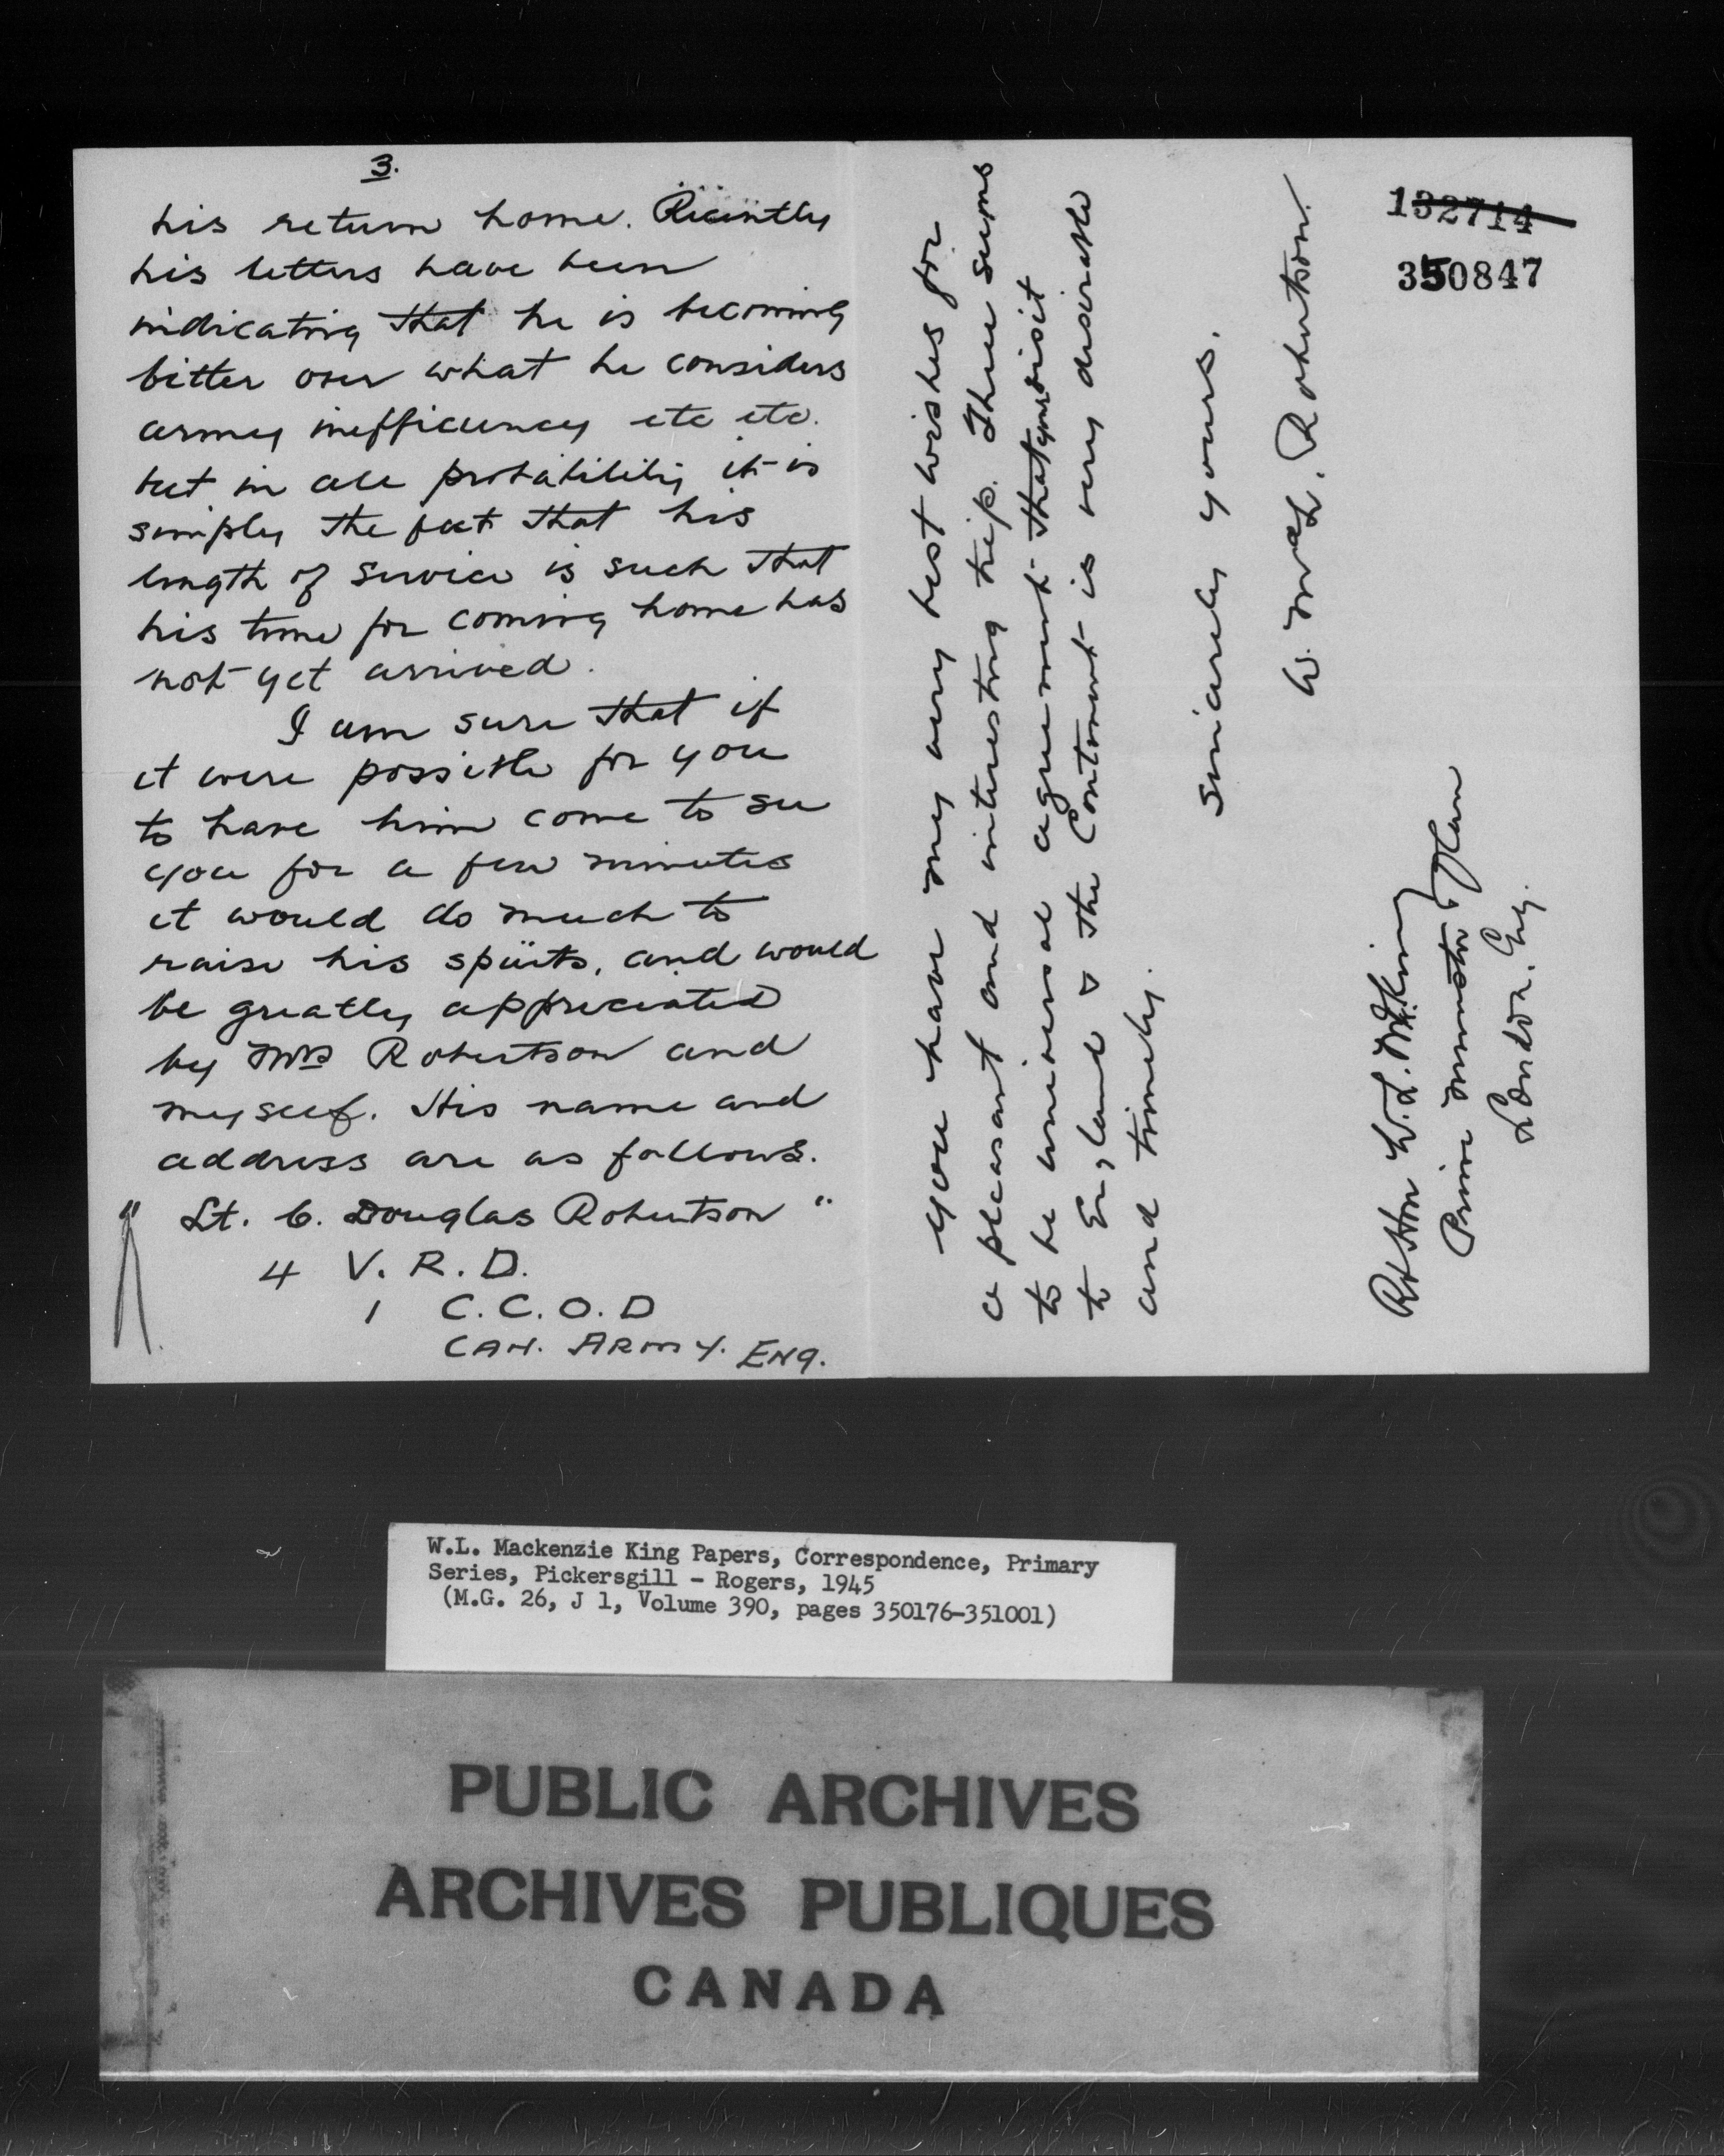 3.
his return home. Recently
his letters have been
indicating that he is becoming
bitter over what he considers
army inefficiency etc etc.
but in all probability it is
simply the fact that his
length of service is such that
his time for coming home has
not yet arrived.
I am sure that if
it were possible for you
to have him come to see
you for a few minutes
it would do much to
raise his spirits, and would
be greatly appreciated
by Mrs Robertson and
myself. His name and
address are as follows.
" Lt. C. Douglas Robertson "
4 V. R. D.
1 C. C. O. D
CAN. ARMY. ENG.
You have my very best wishes for
a pleasant and interesting trip. There seems
to be universal agreement that your visit
to England & the Continent is very desirable
and timely.
Sincerely yours.
W. Robertson.
Rt Hon W. L. M. King
Prime Minister of Can
London. Eng.
132714
350847
W.L. Mackenzie King Papers, Correspondence, Primary
Series, Pickersgill - Rogers, 1945
(M.G. 26, J 1, Volume 390, pages 350176-351001)
PUBLIC ARCHIVES
ARCHIVES PUBLIQUES
CANADA